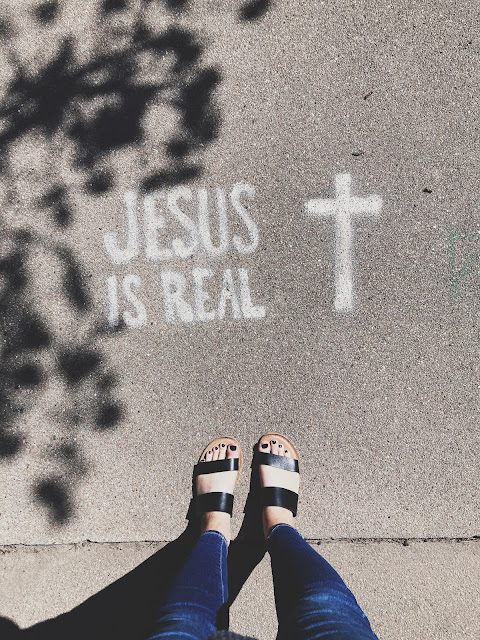 JESUS
IS REAL